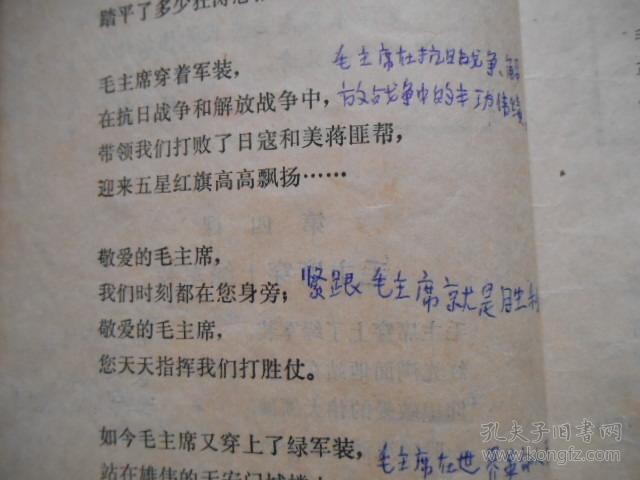 踏平了多少狂涛恶
毛主席穿着军装，
毛主席在抗日战争、解
在抗日战争和解放战争中，
放战争中的丰功伟绩
带领我们打败了日寇和美蒋匪帮，
迎来五星红旗高高飘扬……
第四课
敬爱的毛主席，
我们时刻都在您身旁；
紧跟毛主席就是胜利
敬爱的毛主席，
您天天指挥我们打胜仗。
如今毛主席又穿上了绿军装，
毛主席在世界
站在雄伟的天安门城楼上
孔夫子旧书网